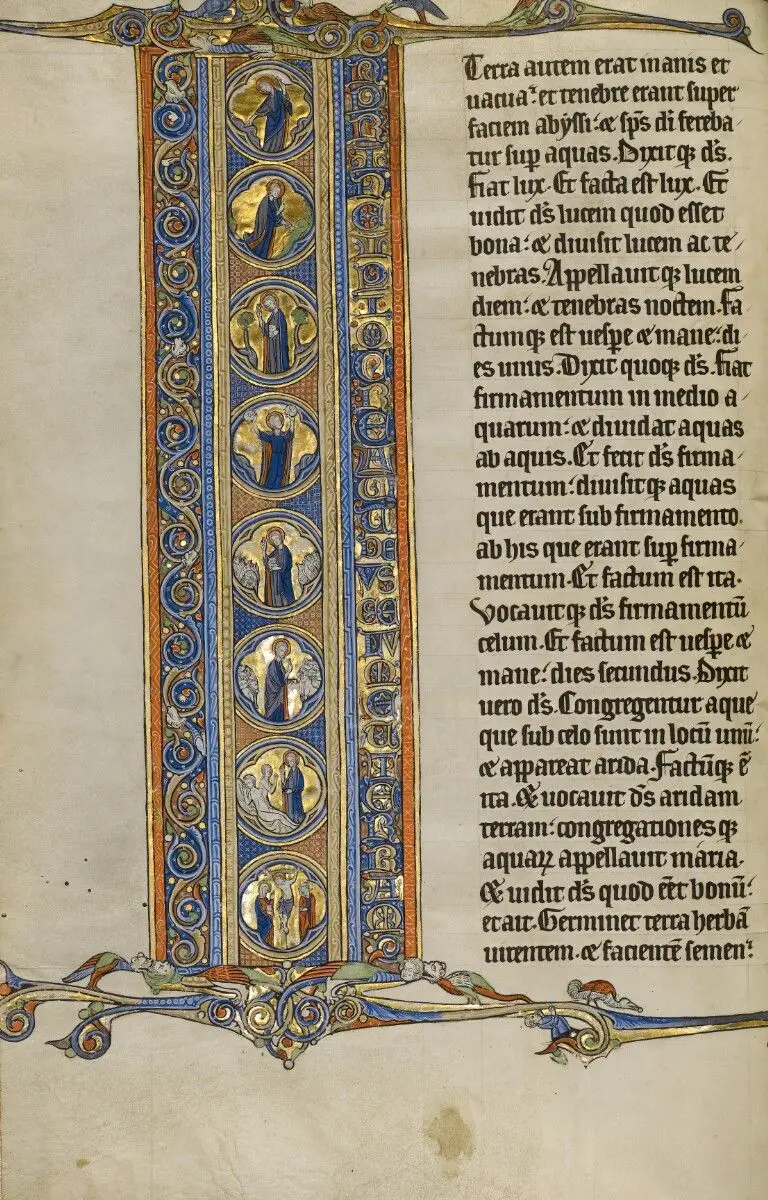 IN PRINCIPIO CREAUIT DEUS CELUM ET TERRAM
Terra autem erat inanis et
uacua: et tenebre erant super
faciem abyssi: et sp̄s dī fereba
tur sup̄ aquas. Dixitqꝫ d̄s.
fiat lux. Et facta est lux. Et
uidit d̄s lucem quod esset
bona: et diuisit lucem ac te/
nebras. Appellauitqꝫ lucem
diem: et tenebras noctem. fa
ctumqꝫ est uesp̄e et mane: di
es unus. Dixit quoqꝫ d̄s. fiat
firmamentum in medio a/
quarum: et diuidat aquas
ab aquis. Et fecit d̄s firma/
mentum: diuisitqꝫ aquas
que erant sub firmamento.
ab his que erant sup̄ firma/
mentum. Et factum est ita.
Vocauitqꝫ d̄s firmamentū
celum. Et factum est uesp̄e et
mane: dies secundus. Dixit
uero d̄s. Congregentur aque
que sub celo sunt in locū unū:
et appareat arida. Factūqꝫ ē
ita. Et uocauit d̄s aridam
terram: congregationesqꝫ
aquaꝝ appellauit maria.
Et uidit d̄s quod eēt bonū:
et ait. Germinet terra herbā
uirentem. et facientē semen: